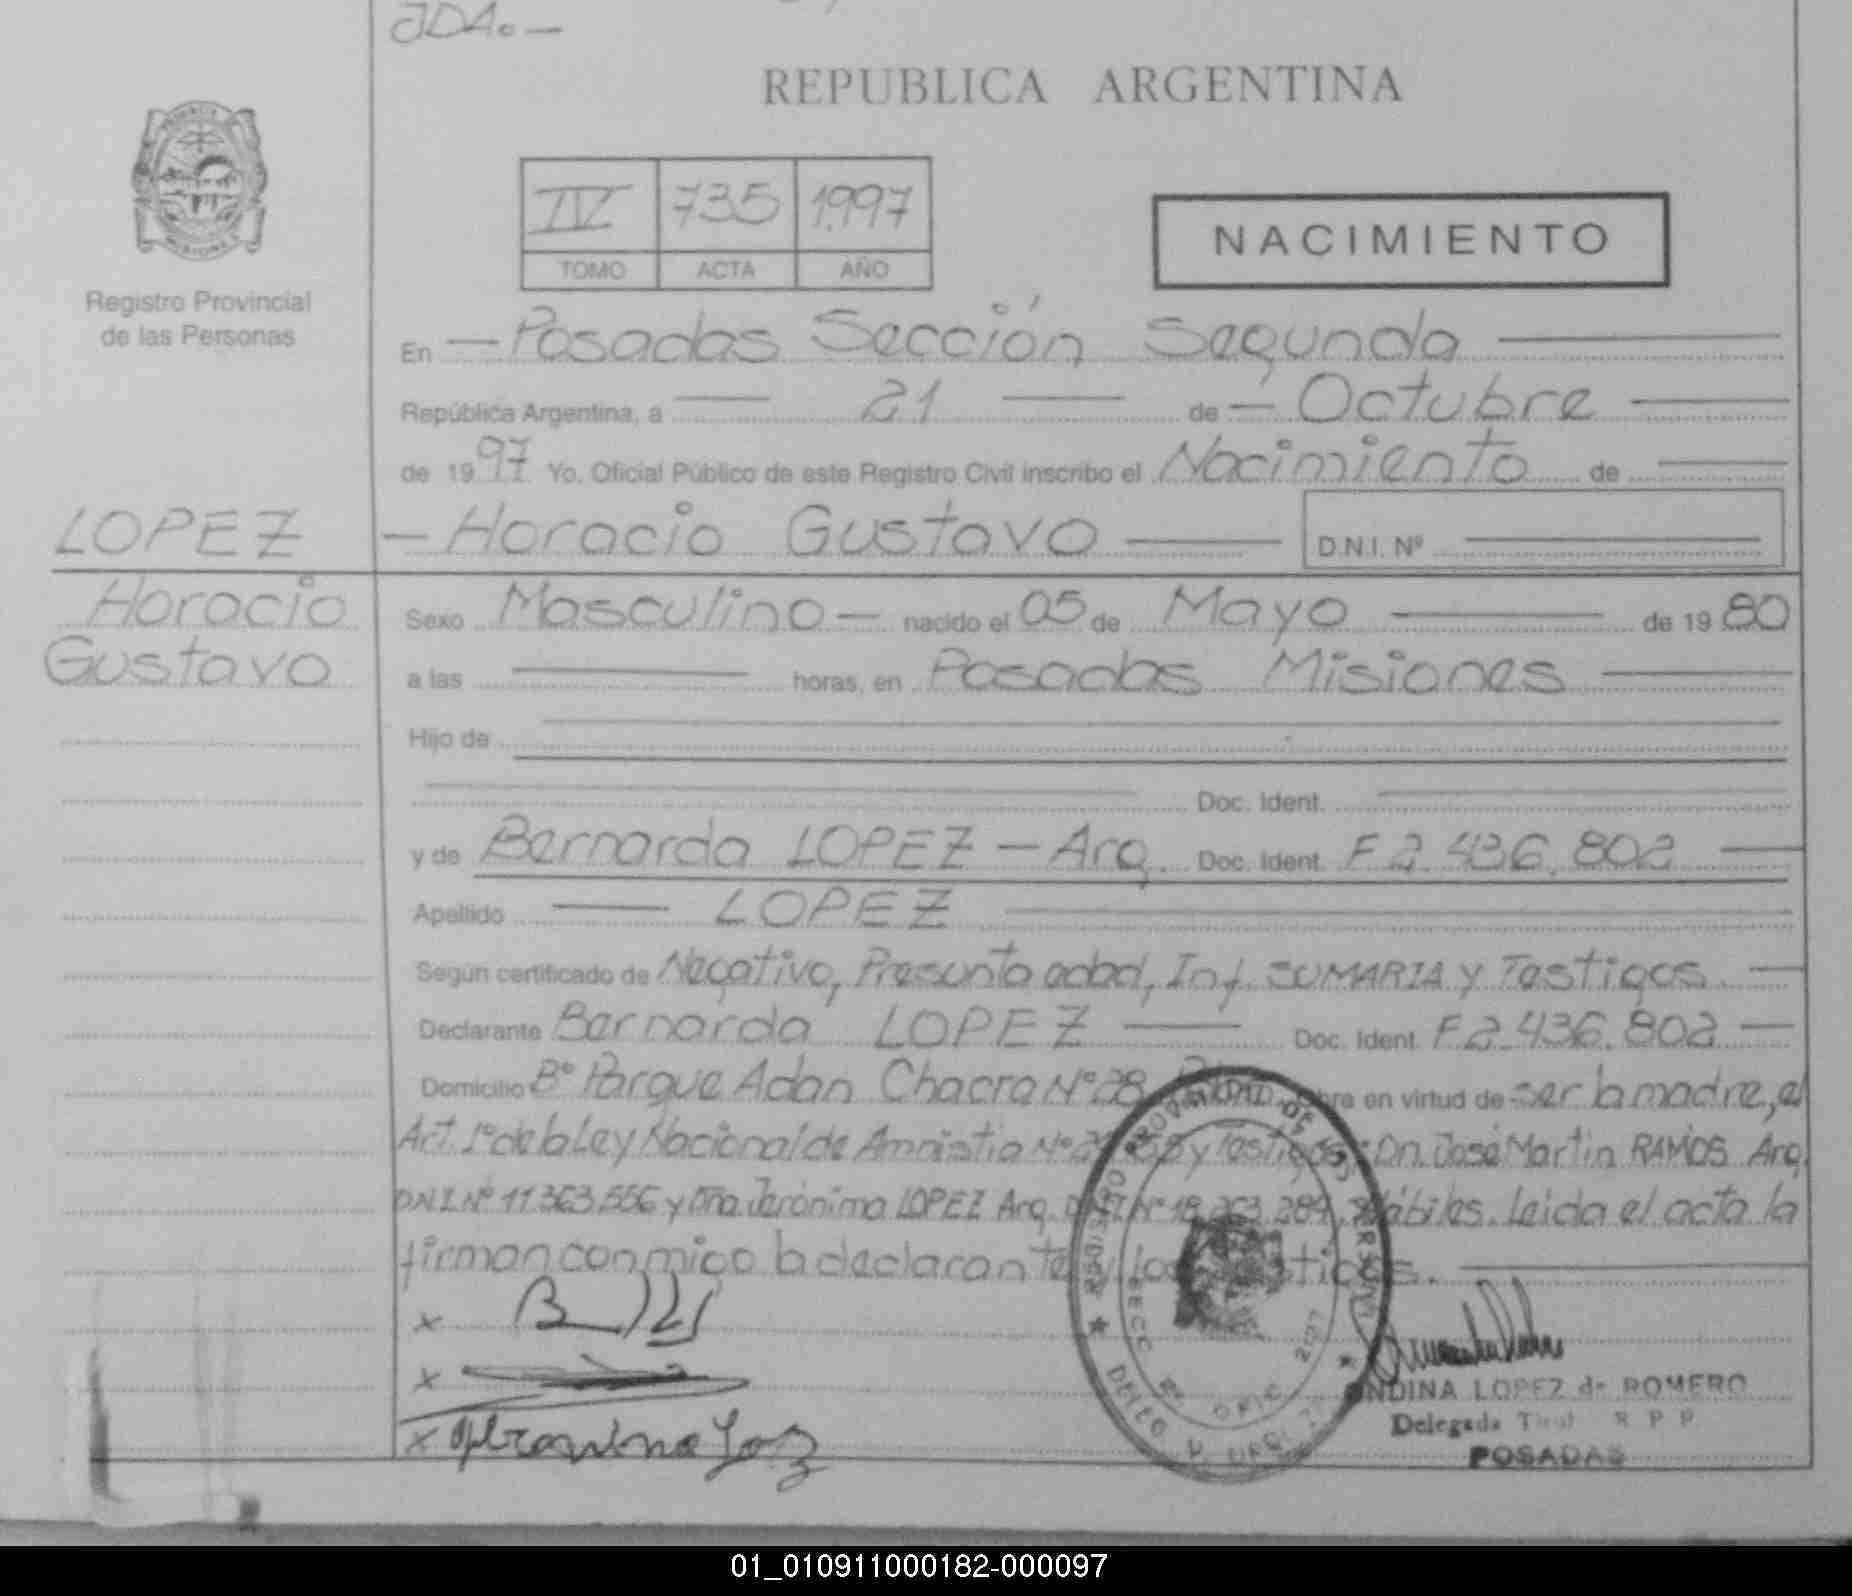 JDA. —
REPUBLICA ARGENTINA
IV 735 1.997
TOMO ACTA AÑO
NACIMIENTO
Registro Provincial
de las Personas
En — Posadas Sección Segunda
República Argentina, a 21 de — Octubre
de 1997 Yo. Oficial Público de este Registro Civil inscribo el Nacimiento de
LOPEZ — Horacio Gustavo D.N.I. Nº
Horacio
Gustavo
Sexo Masculino — nacido el 05 de Mayo de 1980
a las horas, en Posadas Misiones
Hijo de
Doc. Ident.
y de Bernarda LOPEZ — Arg. Doc. Ident. F 2.436.802
Apellido LOPEZ
Según certificado de Negativo, Presunta edad, Inf. SUMARIA y Testigos.
Declarante Bernarda LOPEZ Doc. Ident. F 2.436.802 —
Domicilio Bº Parque Adan Chacra Nº 28 en virtud de ser la madre, el
Art. 1º de la Ley Nacional de Amnistia Nº y Testigos Dn. José Martin RAMOS Arg.
D.N.I Nº 11.363.556 y Dña Jerónima LOPEZ Arg. D.N.I Nº 18.263.289, Hábiles. Leida el acta la
firman conmigo la declarante y los testigos.
x
x
x Jeronima
REGISTRO PROVINCIAL DE LAS PERSONAS
SECC 2º OFIC
NDINA LOPEZ de ROMERO
Delegada Titul R P P
POSADAS
01_010911000182-000097